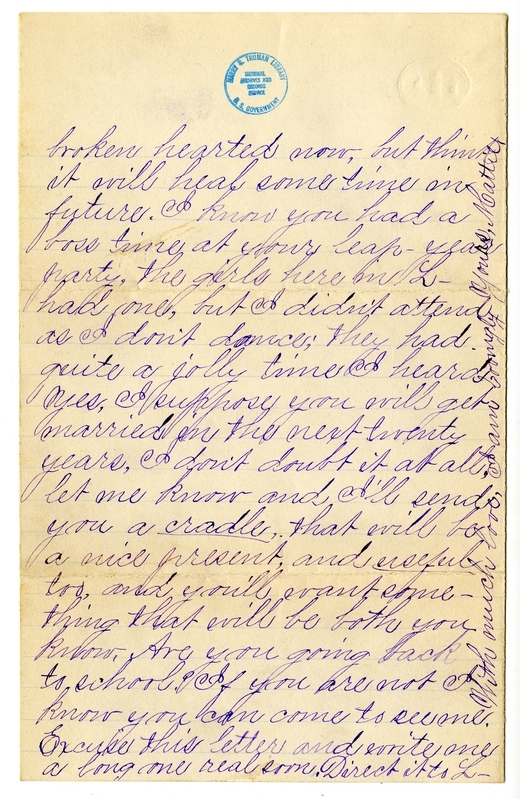 HARRY S. TRUMAN LIBRARY
NATIONAL
ARCHIVES AND
RECORDS
SERVICE
U. S. GOVERNMENT
broken hearted now, but think
it will heal some time in
future. I know you had a
boss time at your leap-year
party, the girls here in L-
had one, but I didn't attend
as I don't dance; they had
quite a jolly time I heard
Yes, I suppose you will get
married in the next twenty
years, I don't doubt it at all,
let me know and I'll send
you a cradle, that will be
a nice present, and useful
too, and you'll want some-
thing that will be both you
know. Are you going back
to school? If you are not I
know you can come to see me.
Excuse this letter and write me
a long one real soon. Direct it to L-
With much love, I am Yours, Mattie